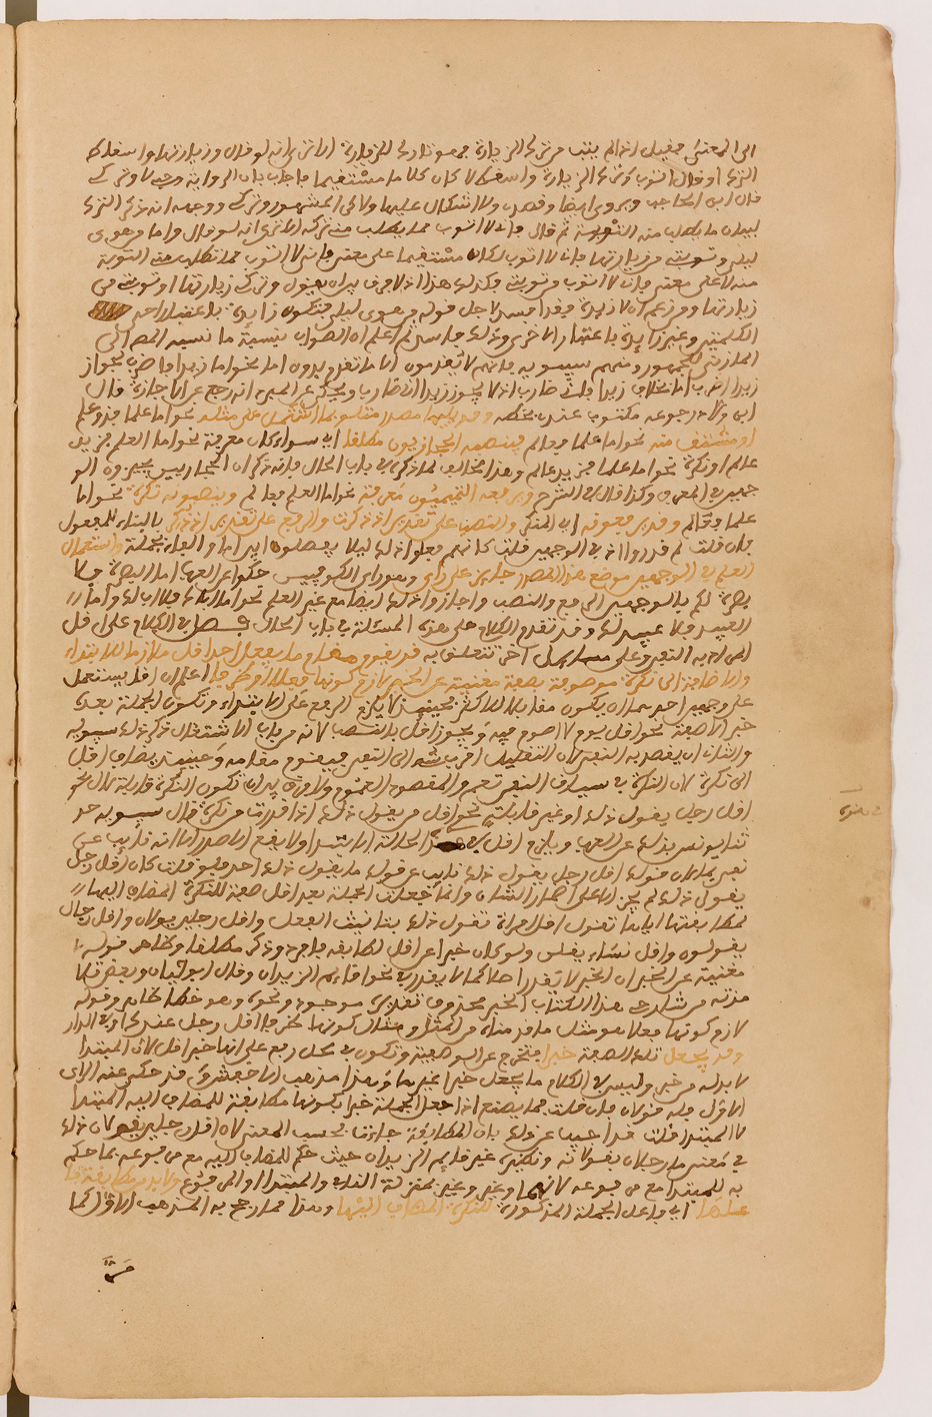 الى المعنى فقيل اذا لم يتب من ترك الزيارة فهو تارك للزيارة الا ترى انه لو قال وزيارتها واسقط
الترك او قال لا اتوب من ترك الزيارة واسقط لا كان كلاما مستقيما فاجاب بان الرواية وجب لا وتركى
قال ابن الحاجب ويروى ايضا ولا اشكال عليها ولاكن المشهور وتركى ووجهه انه ذكر الترك
لبيان ما يطلب منه التوبة ثم قال فانى لا اتوب مما يطلب منى تركه الا ترى انه لو قال واما من هوى
ليلى وتوبتى من زيارتها فانى لا اتوب لكان مستقيما على معنى فانى لا اتوب مما تطلب منى التوبة
منه لا على معنى فانى لا اتوب من توبتى فكذلك هذا اذ لا فرق بين ان يقول وتركى زيارتها او توبتى من
زيارتها ومن زعم ان لا زائدة فقد افسد لاجل قوله من هوى ليلى فتكون زايدة باعتبار احدى
الكلمتين وغير زايدة باعتبار الاخرى وذلك فاسد ثم اعلم ان الصواب نسبة ما نسبه المص الى
المازنى للجمهور ومنهم سيبويه فانهم لا يقدمون الا ما تقدم يروه اما نحو اما زيدا فاضرب فجواز
زيدا اضرب اما بخلاف زيدا فانى ضارب اذ لا يجوز زيدا انى ضارب ويحكى عن المبرد انه رجع عن الاجازة قال
ابن ولاد رجوعه مكتوب عندى بخطه وقد يليها مصدر متلو بما اشتمل على مثله نحو اما علما فذو علم
او مشتق منه نحو اما علما فعالم فينصبه الحجازيون مطلقا اى سواء كان معرفة نحو اما العلم فزيد
عالم او نكرة نحو اما علما فزيد عالم وهذا مخالف لما ذكره فى باب الحال فانه ذكر ان الحجازيين يجيزون الو
جهين فى المعرف وكذا قال فى الشرح ويرفعه التميميون معرفة نحو اما العلم فعالم وينصبونه نكرة نحو اما
علما فعالم وقد يرفعونه اى المنكر والنصب على تقدير اذا ذكرت والرفع على تقدير اذا ذكر بالبناء للمفعول
فان قلت لم قدروا اذا فى الوجهين قلت كانهم فعلوا ذلك ليلا يفصلوا بين اما والفاء بجملة واستعمال
العلم فى الوجهين موضع هذا المصدر جايز على راى وهو راى الكوفيين حكوا عن العرب اما البصرة فلا
بصرة لكم بالوجهين الرفع والنصب واجازوا ذلك ايضا مع غير العلم نحو اما اباك فلا اب لك واما
العبيد فلا عبيد لك وقد تقدم الكلام على هذه المسئلة فى باب الحال فصل فى الكلام على اقل
المراد به النفى وعلى مسايل اخر تتعلق به قد يقوم مقام ما يفعل احد اقل ملازما للابتداء
والاضافة الى نكرة موصوفة بصفة مغنية عن الخبر لازم كونها فعلا او ظرفا اعلم ان اقل يستعمل
على وجهين احدهما ان يكون مقابلا للاكثر فحينئذ لا يلزم الرفع على الابتداء وتكون الجملة بعده
خبرا لا صفة نحو اقل يوم لا اصوم فيه ويجوز اقل بالنصب لانه من باب الاشتغال ذكر ذلك سيبويه
والثانى ان يقصد به النفى لان التقليل اقرب شىء الى النفى فيقوم مقامه وحينئذ يضاف اقل
الى نكرة لان النكرة فى سياق النفى تعم والمقصود العموم ولا فرق بين ان تكون النكرة قابلة لال نحو
اقل رجل يقول ذلك او غير قابلة نحو اقل من يقول ذلك اذا قدرت من نكرة قال سيبويه حد
ثنا يونس بذلك عن العرب ويلزم اقل فى هذه الحالة الابتداء ولا يقع الا صدرا لانه نايب عن
نفى فلان قولك اقل رجل يقول ذلك نايب عن قولك ما يقول ذلك احد فلو قلت كان اقل رجل
يقول ذلك لم يجز الا على اضمار الشان وانما جعلت الجملة بعد اقل صفة للنكرة المضاف اليها
لمطابقتها اياها تقول اقل امراة تقول ذلك بتانيث الفعل واقل رجلين يقولان واقل رجال
يقولون واقل نساء يقلن ولو كان خبرا عن اقل لطابقه فافرد وذكر مطلقا وظاهر قوله
مغنية عن الخبر ان الخبر لا يقدر اصلا كما لا يقدر فى نحو اقايم الزيدان وقال ابو حيان وبعض قدما
من شارحى هذا الكتاب الخبر محذوف تقديره موجود ونحوه وهو خطا ظاهر وقوله
لازم كونها فعلا هو مثل ما قدمناه من المثل ومثال كونها ظرفا اقل رجل عندك او فى الدار
وقد يجعل تلك الصفة خبرا فتخرج عن الوصفية وتكون فى محل رفع على انها خبر اقل لان المبتدا
لا بد له من خبر وليس فى الكلام ما يجعل خبرا غيرها وهذا مذهب الاخفش وقد حكى عنه الراى
الاول فله قولان فان قلت فما يصنع اذا جعل الجملة خبرا بكونها مطابقة للمضاف اليه المبتدا
لا المبتدا قلت قد اجيب عن ذلك بان المطابقة جاءت بحسب المعنى لان اقل رجلين يقولان ذلك
فى معنى ما رجلان يقولانه ونظيره غير قايم الزيدان حيث حكم للمضاف اليه مع مرفوعه بما حكم
به للمبتدا مع مرفوعه لانهما وغير وغير بمنزلة النافى والمبتدا والمرفوع ولا بد من مطابقة فا
علها اى فاعل الجملة المذكورة للنكرة المضاف اليها وهذا مما رجح به المذهب الاول كما